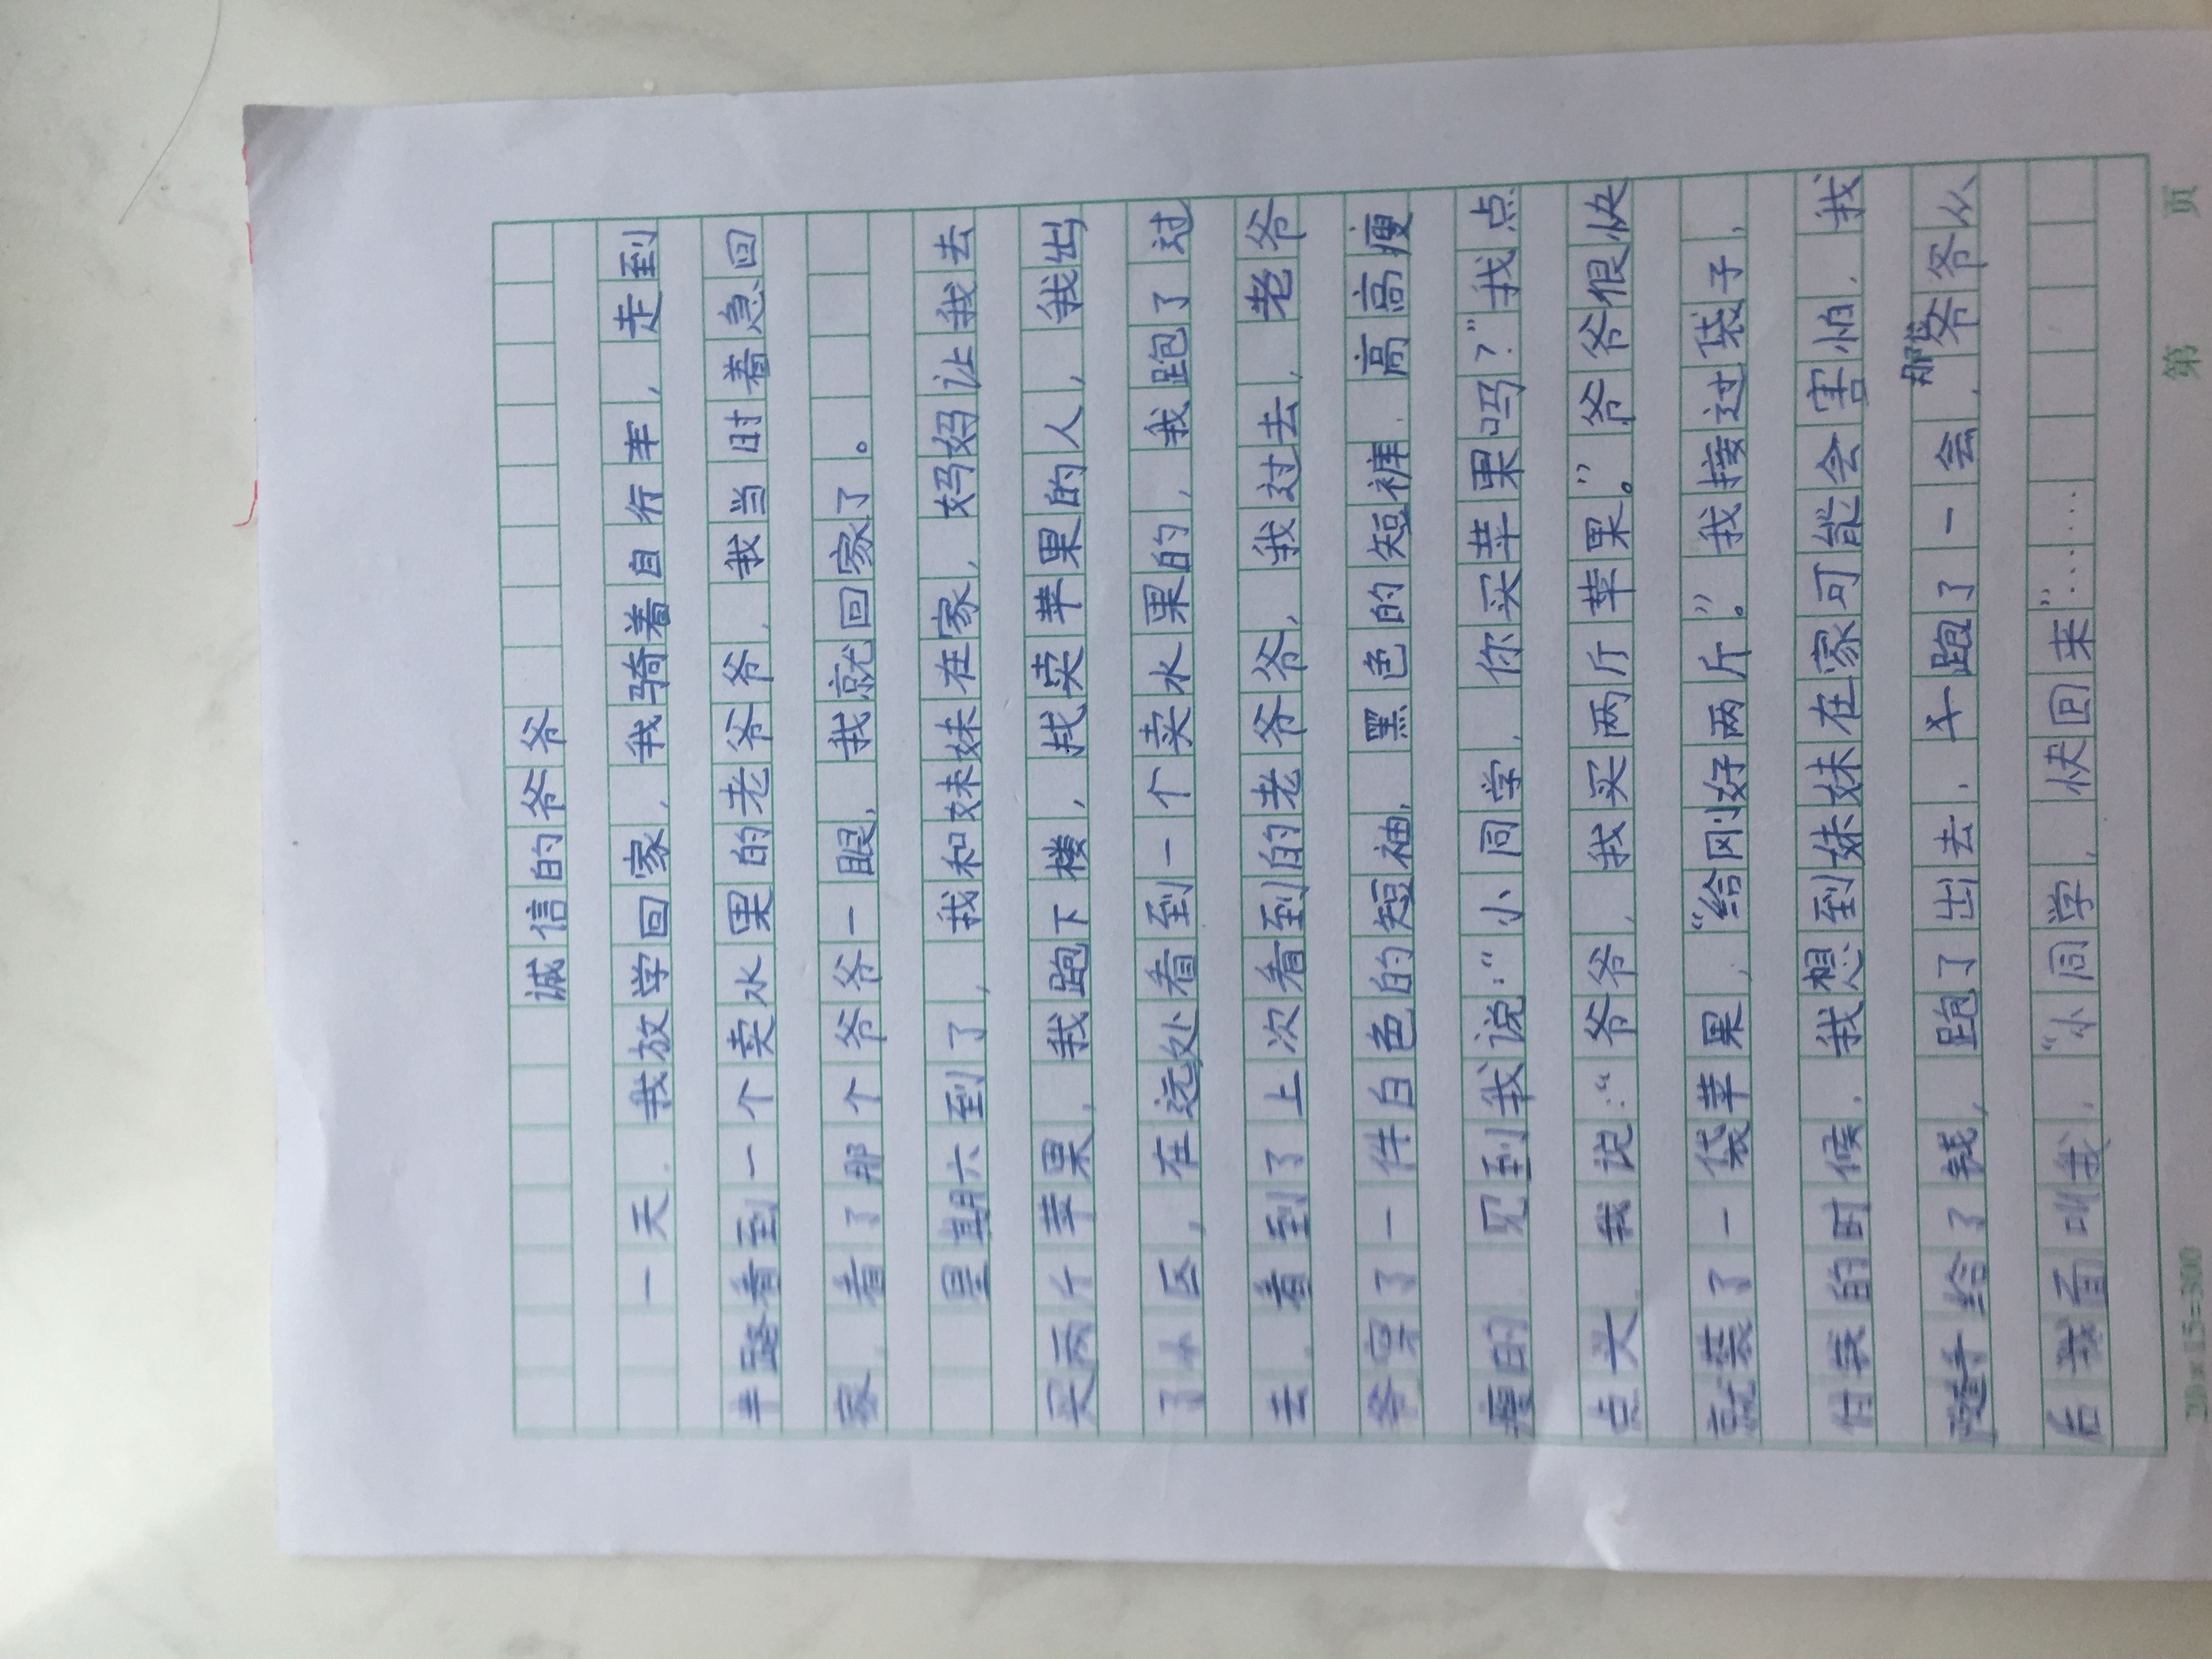 诚信的爷爷
一天，我放学回家，我骑着自行车，走到
半路看到一个卖水果的老爷爷，我当时着急回
家，看了那个爷爷一眼，我就回家了。
星期六到了，我和妹妹在家，妈妈让我去
买两斤苹果，我跑下楼，找卖苹果的人，我出
了小区，在远处看到一个卖水果的，我跑了过
去，看到了上次看到的老爷爷，我过去，老爷
爷穿了一件白色的短袖，黑色的短裤，高高瘦
瘦的，见到我说：“小同学，你买苹果吗？”我点
点头，我说：“爷爷，我买两斤苹果。”爷爷很快
就装了一袋苹果，“给刚好两斤。”我接过袋子，
付钱的时候，我想到妹妹在家可能会害怕，我
随手给了钱，跑了出去，才跑了一会，那爷爷从
后我面叫我，“小同学，快回来”……
20×15=300 第 页